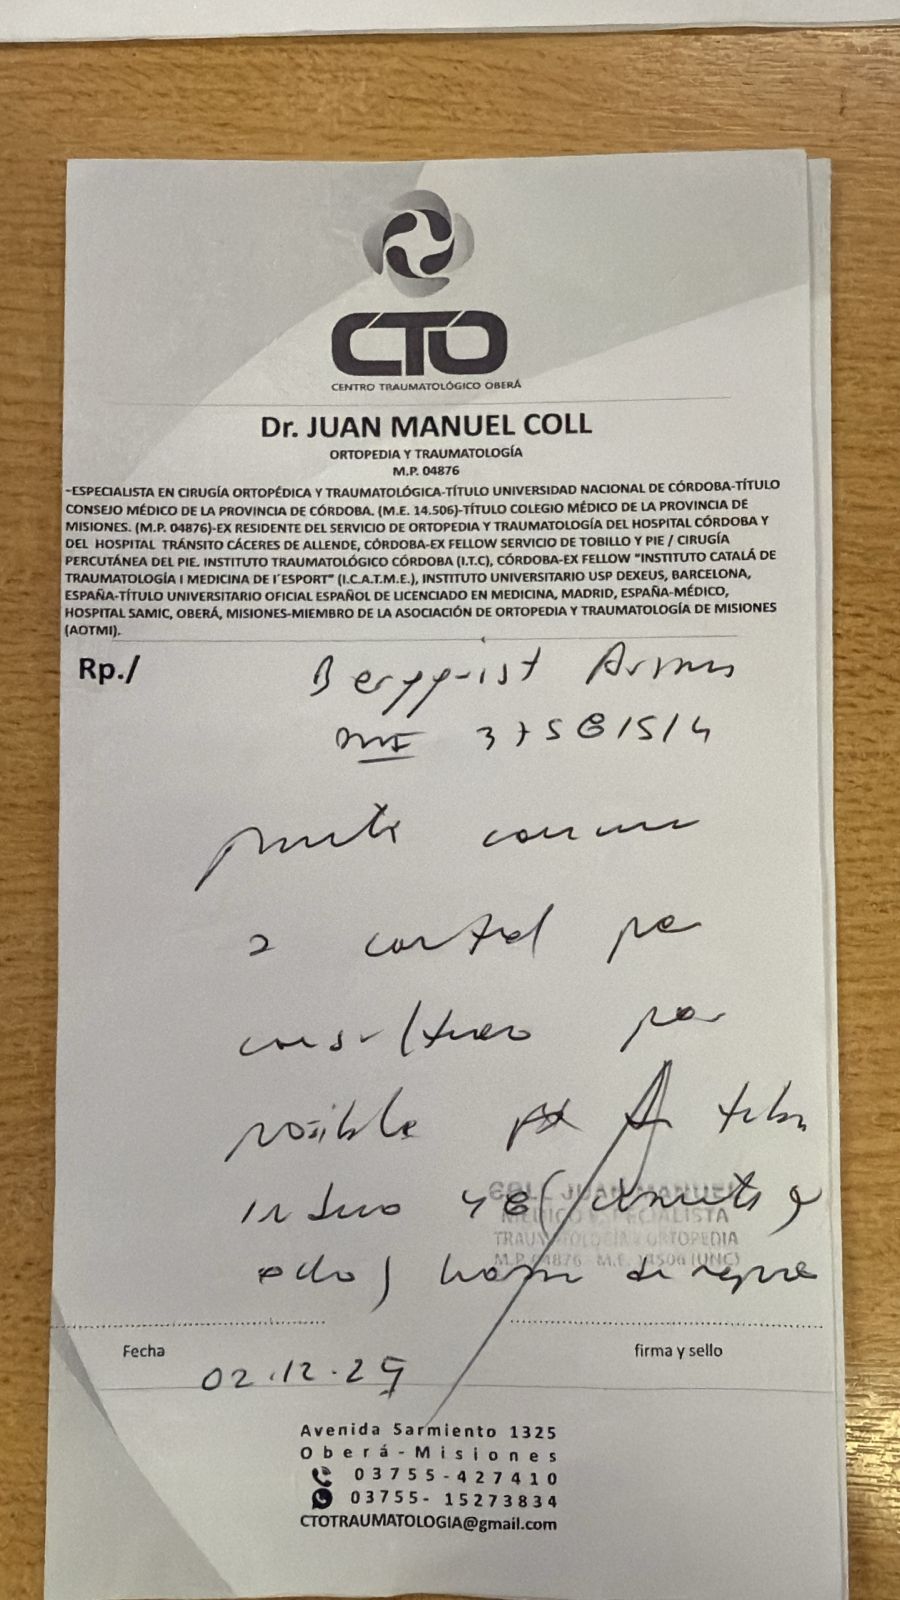 CTO
CENTRO TRAUMATOLÓGICO OBERÁ
Dr. JUAN MANUEL COLL
ORTOPEDIA Y TRAUMATOLOGÍA
M.P. 04876
-ESPECIALISTA EN CIRUGÍA ORTOPÉDICA Y TRAUMATOLÓGICA-TÍTULO UNIVERSIDAD NACIONAL DE CÓRDOBA-TÍTULO
CONSEJO MÉDICO DE LA PROVINCIA DE CÓRDOBA. (M.E. 14.506)-TÍTULO COLEGIO MÉDICO DE LA PROVINCIA DE
MISIONES. (M.P. 04876)-EX RESIDENTE DEL SERVICIO DE ORTOPEDIA Y TRAUMATOLOGÍA DEL HOSPITAL CÓRDOBA Y
DEL HOSPITAL TRÁNSITO CÁCERES DE ALLENDE, CÓRDOBA-EX FELLOW SERVICIO DE TOBILLO Y PIE / CIRUGÍA
PERCUTÁNEA DEL PIE. INSTITUTO TRAUMATOLÓGICO CÓRDOBA (I.T.C), CÓRDOBA-EX FELLOW "INSTITUTO CATALÁ DE
TRAUMATOLOGÍA I MEDICINA DE I´ESPORT" (I.C.A.T.M.E.), INSTITUTO UNIVERSITARIO USP DEXEUS, BARCELONA,
ESPAÑA-TÍTULO UNIVERSITARIO OFICIAL ESPAÑOL DE LICENCIADO EN MEDICINA, MADRID, ESPAÑA-MÉDICO,
HOSPITAL SAMIC, OBERÁ, MISIONES-MIEMBRO DE LA ASOCIACIÓN DE ORTOPEDIA Y TRAUMATOLOGÍA DE MISIONES
(AOTMI).
Rp./ Bergquist
a control por
consultorio por
posible
COLL JUAN MANUEL
MEDICO ESPECIALISTA
TRAUMATOLOGIA Y ORTOPEDIA
M.P. 04876 M.E. 14506 (UNC)
Fecha
firma y sello
02.12.25
Avenida Sarmiento 1325
Oberá-Misiones
03755-427410
03755- 15273834
CTOTRAUMATOLOGIA@gmail.com